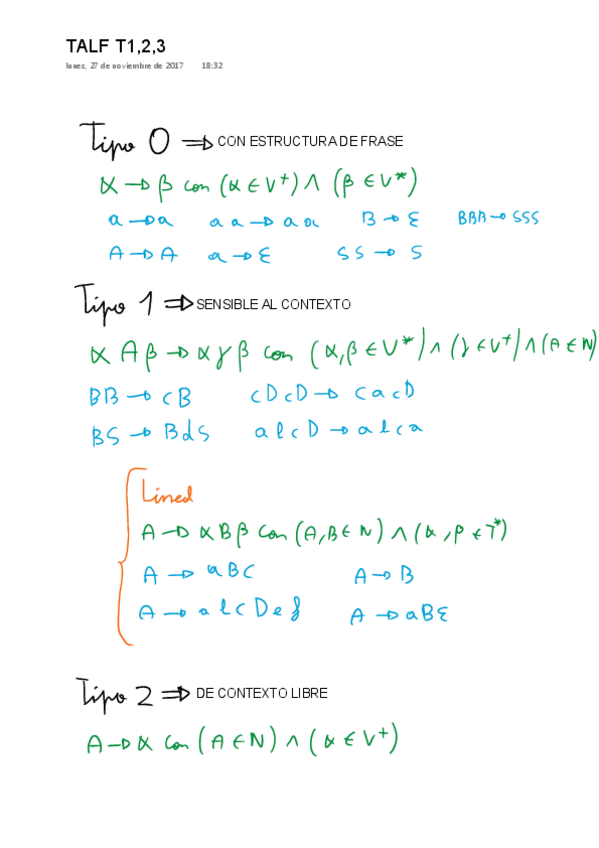 TALF T1,2,3
lunes, 27 de noviembre de 2017 18:32
Tipo 0 ⇒ CON ESTRUCTURA DE FRASE
α → β con (α ∈ V⁺) ∧ (β ∈ V*)
a → a aa → aa B → ε BBB → SSS
A → A a → ε SS → S
Tipo 1 ⇒ SENSIBLE AL CONTEXTO
α A β → α γ β con (α, β ∈ V*) ∧ (γ ∈ V⁺) ∧ (A ∈ N)
BB → cB cDcD → cacD
BS → BdS abcD → abca
Lineal
A → α B β con (A, B ∈ N) ∧ (α, β ∈ T*)
A → aBc A → B
A → abcDef A → aBε
Tipo 2 ⇒ DE CONTEXTO LIBRE
A → α con (A ∈ N) ∧ (α ∈ V⁺)